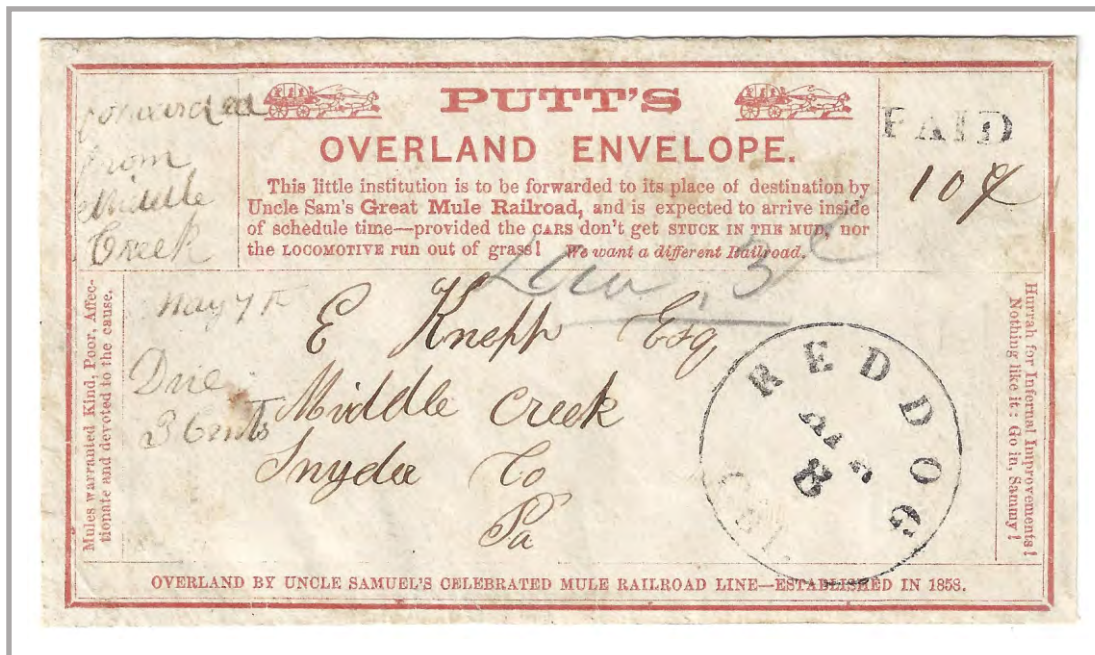 forwarded
from
Middle
Creek
PUTT'S
OVERLAND ENVELOPE.
This little institution is to be forwarded to its place of destination by
Uncle Sam's Great Mule Railroad, and is expected to arrive inside
of schedule time—provided the CARS don't get STUCK IN THE MUD, nor
the LOCOMOTIVE run out of grass! We want a different Railroad.
PAID
10
Mules warranted Kind, Poor, Affec-
tionate and devoted to the cause.
May 7
Due
3 Cents
Due 3
E Knepp Esq
Middle Creek
Snyder Co
Pa
RED DOG
8
Hurrah for Internal Improvements!
Nothing like it: Go in, Sammy!
OVERLAND BY UNCLE SAMUEL'S CELEBRATED MULE RAILROAD LINE—ESTABLISHED IN 1858.